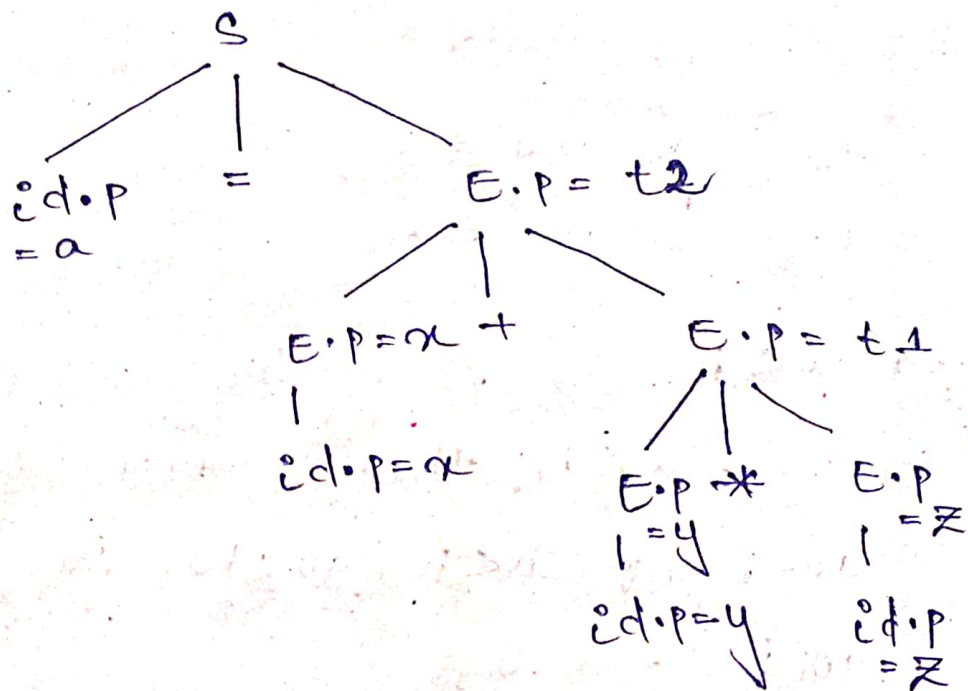 S
id.p = E.p = t2
= a
E.p = x + E.p = t1
id.p = x E.p * E.p
= y = z
id.p = y id.p
= z